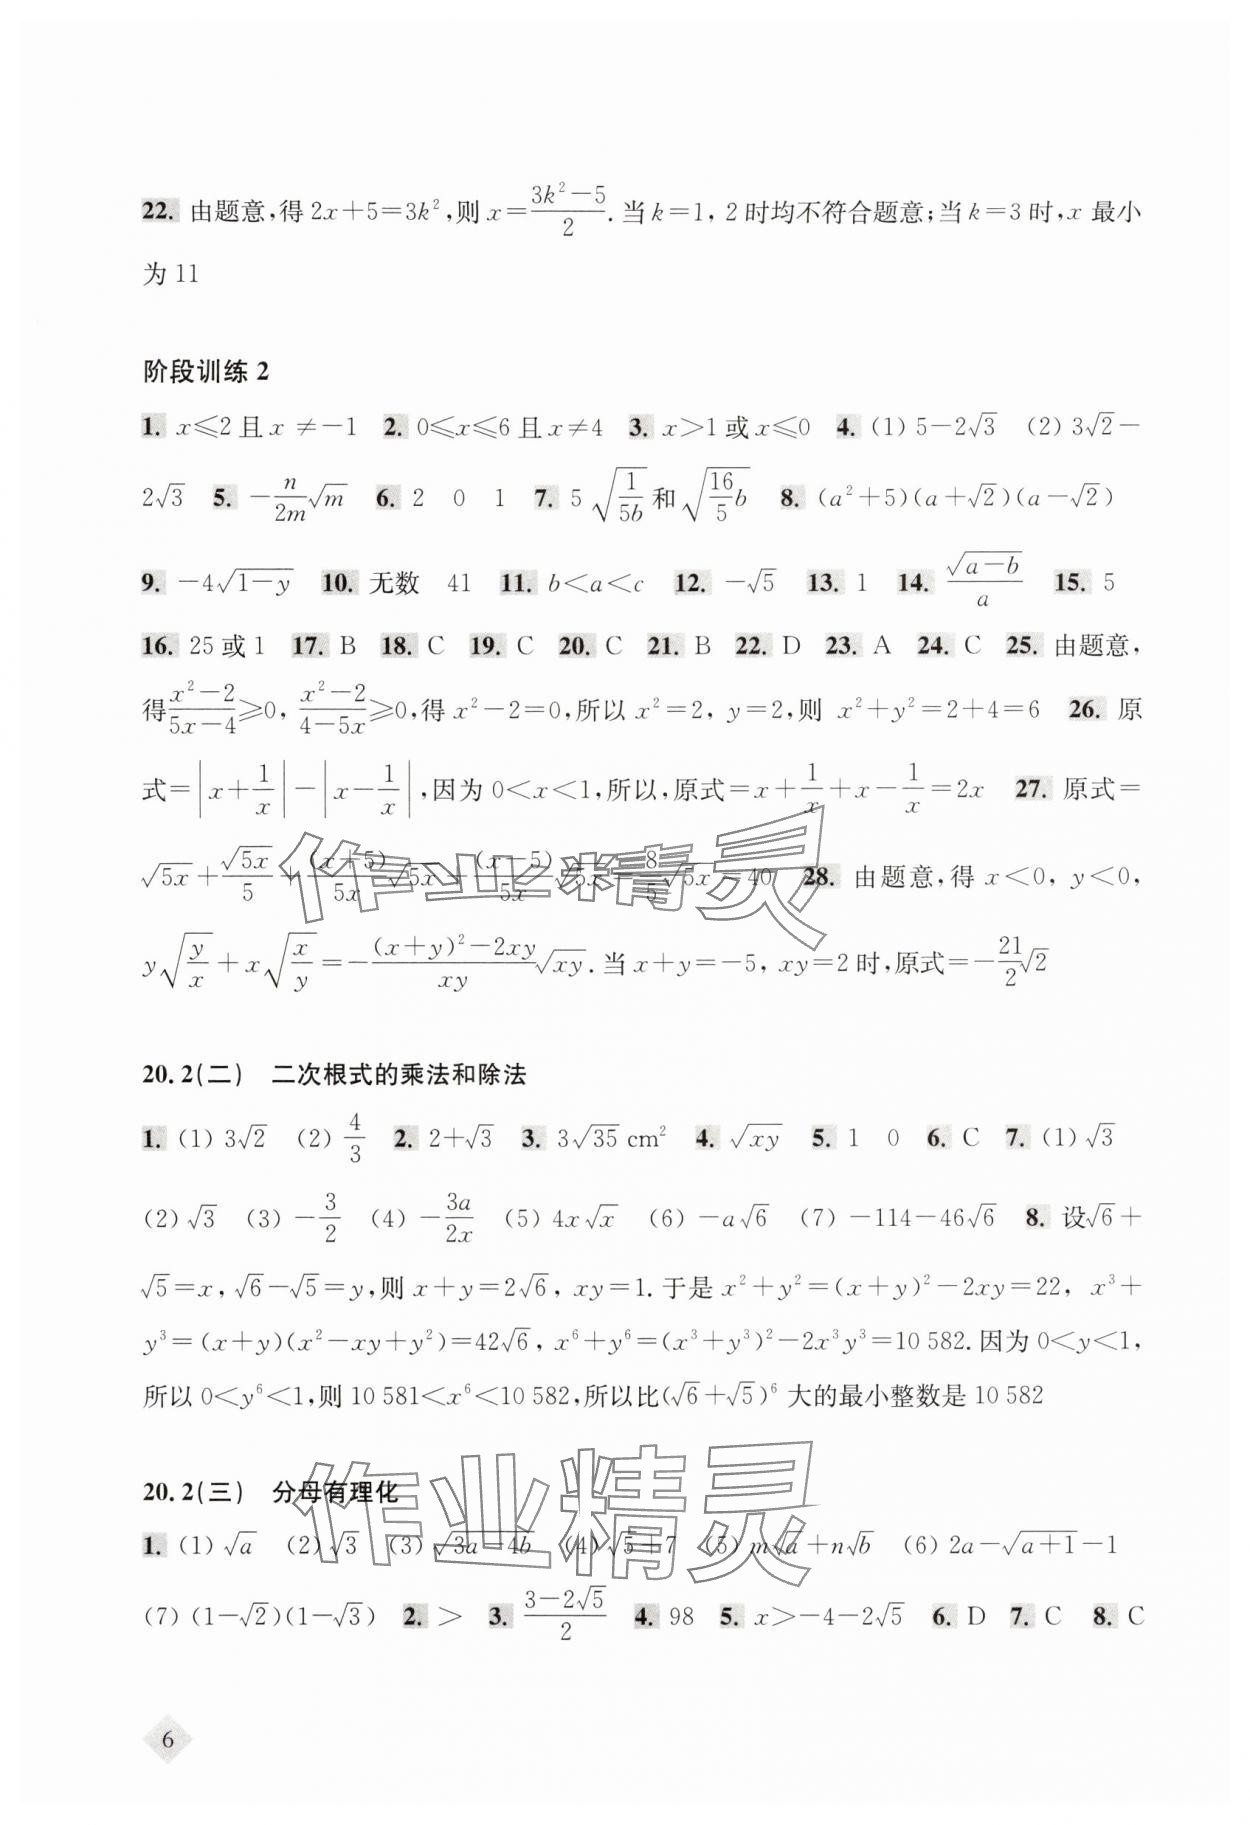 22. 由题意,得 2x+5=3k²,则 x=(3k²-5)/2. 当 k=1, 2 时均不符合题意;当 k=3 时,x 最小
为 11
阶段训练 2
1. x≤2 且 x ≠-1 2. 0≤x≤6 且 x≠4 3. x>1 或 x≤0 4. (1) 5-2√3 (2) 3√2-
2√3 5. -n/(2m)√m 6. 2 0 1 7. 5√(1/(5b)) 和 √(16/5 b) 8. (a²+5)(a+√2)(a-√2)
9. -4√(1-y) 10. 无数 41 11. b<a<c 12. -√5 13. 1 14. √(a-b)/a 15. 5
16. 25 或 1 17. B 18. C 19. C 20. C 21. B 22. D 23. A 24. C 25. 由题意,
得 (x²-2)/(5x-4)≥0, (x²-2)/(4-5x)≥0,得 x²-2=0,所以 x²=2, y=2,则 x²+y²=2+4=6 26. 原
式=|x+1/x|-|x-1/x|,因为 0<x<1,所以,原式=x+1/x+x-1/x=2x 27. 原式=
√(5x)+√(5x)/5 (x+5)/(5x) √(5x) (x-5)/(5x) √(5x) 8/5 √(5x)=40 28. 由题意,得 x<0, y<0,
y√(y/x)+x√(x/y)=-((x+y)²-2xy)/(xy) √(xy). 当 x+y=-5, xy=2 时,原式=-21/2 √2
20. 2(二) 二次根式的乘法和除法
1. (1) 3√2 (2) 4/3 2. 2+√3 3. 3√35 cm² 4. √(xy) 5. 1 0 6. C 7. (1) √3
(2) √3 (3) -3/2 (4) -3a/(2x) (5) 4x√x (6) -a√6 (7) -114-46√6 8. 设√6+
√5=x, √6-√5=y,则 x+y=2√6, xy=1. 于是 x²+y²=(x+y)²-2xy=22, x³+
y³=(x+y)(x²-xy+y²)=42√6, x⁶+y⁶=(x³+y³)²-2x³y³=10 582. 因为 0<y<1,
所以 0<y⁶<1,则 10 581<x⁶<10 582,所以比(√6+√5)⁶ 大的最小整数是 10 582
20. 2(三) 分母有理化
1. (1) √a (2) √3 (3) √(3a-4b) (4) √5+7 (5) m√a+n√b (6) 2a-√(a+1)-1
(7) (1-√2)(1-√3) 2. > 3. (3-2√5)/2 4. 98 5. x>-4-2√5 6. D 7. C 8. C
6
作业精灵
作业精灵